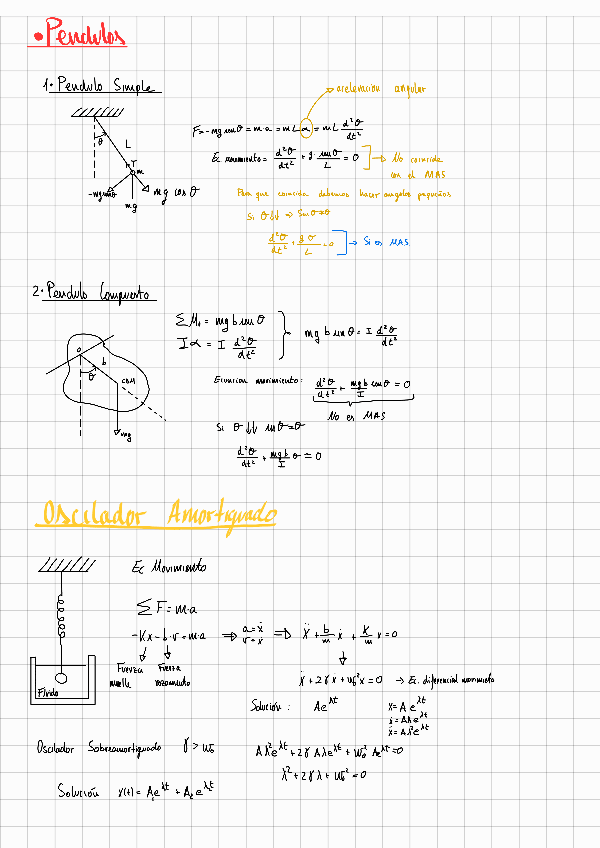 • Pendulos
1. Pendulo Simple
aceleracion angular
F = -mg sin θ = m·a = m L α = m L d²θ/dt²
Ec movimiento = d²θ/dt² + g · sin θ/L = 0 → No coincide
con el MAS
Para que coincida debemos hacer angulos pequeños
Si θ↓↓ → Sin θ ≈ θ
d²θ/dt² + g θ/L = 0 → Si es MAS
θ
L
T
m
-mg sin θ
mg cos θ
mg
2. Pendulo Compuesto
ΣM₀ = mg b sin θ
I α = I d²θ/dt²
mg b sin θ = I d²θ/dt²
o
b
θ
CDM
mg
Ecuacion movimiento: d²θ/dt² + mgb/I sin θ = 0
No es MAS
Si θ ↓↓ sin θ ≈ θ
d²θ/dt² + mgb/I θ = 0
Oscilador Amortiguado
Ec Movimiento
ΣF = m·a
-Kx - b·v = m·a ⇒ a = ẍ v = ẋ ⇒ ẍ + b/m ẋ + K/m x = 0
Fuerza muelle
Fuerza rozamiento
Fluido
ẍ + 2γẋ + ω₀²x = 0 → Ec. diferencial movimiento
Solución: Ae^λt
x = A e^λt
ẋ = Aλe^λt
ẍ = Aλ²e^λt
Oscilador Sobreamortiguado γ > ω₀
Aλ²e^λt + 2γ Aλe^λt + ω₀² Ae^λt = 0
λ² + 2γλ + ω₀² = 0
Solución x(t) = A₁e^λt + A₂e^λt